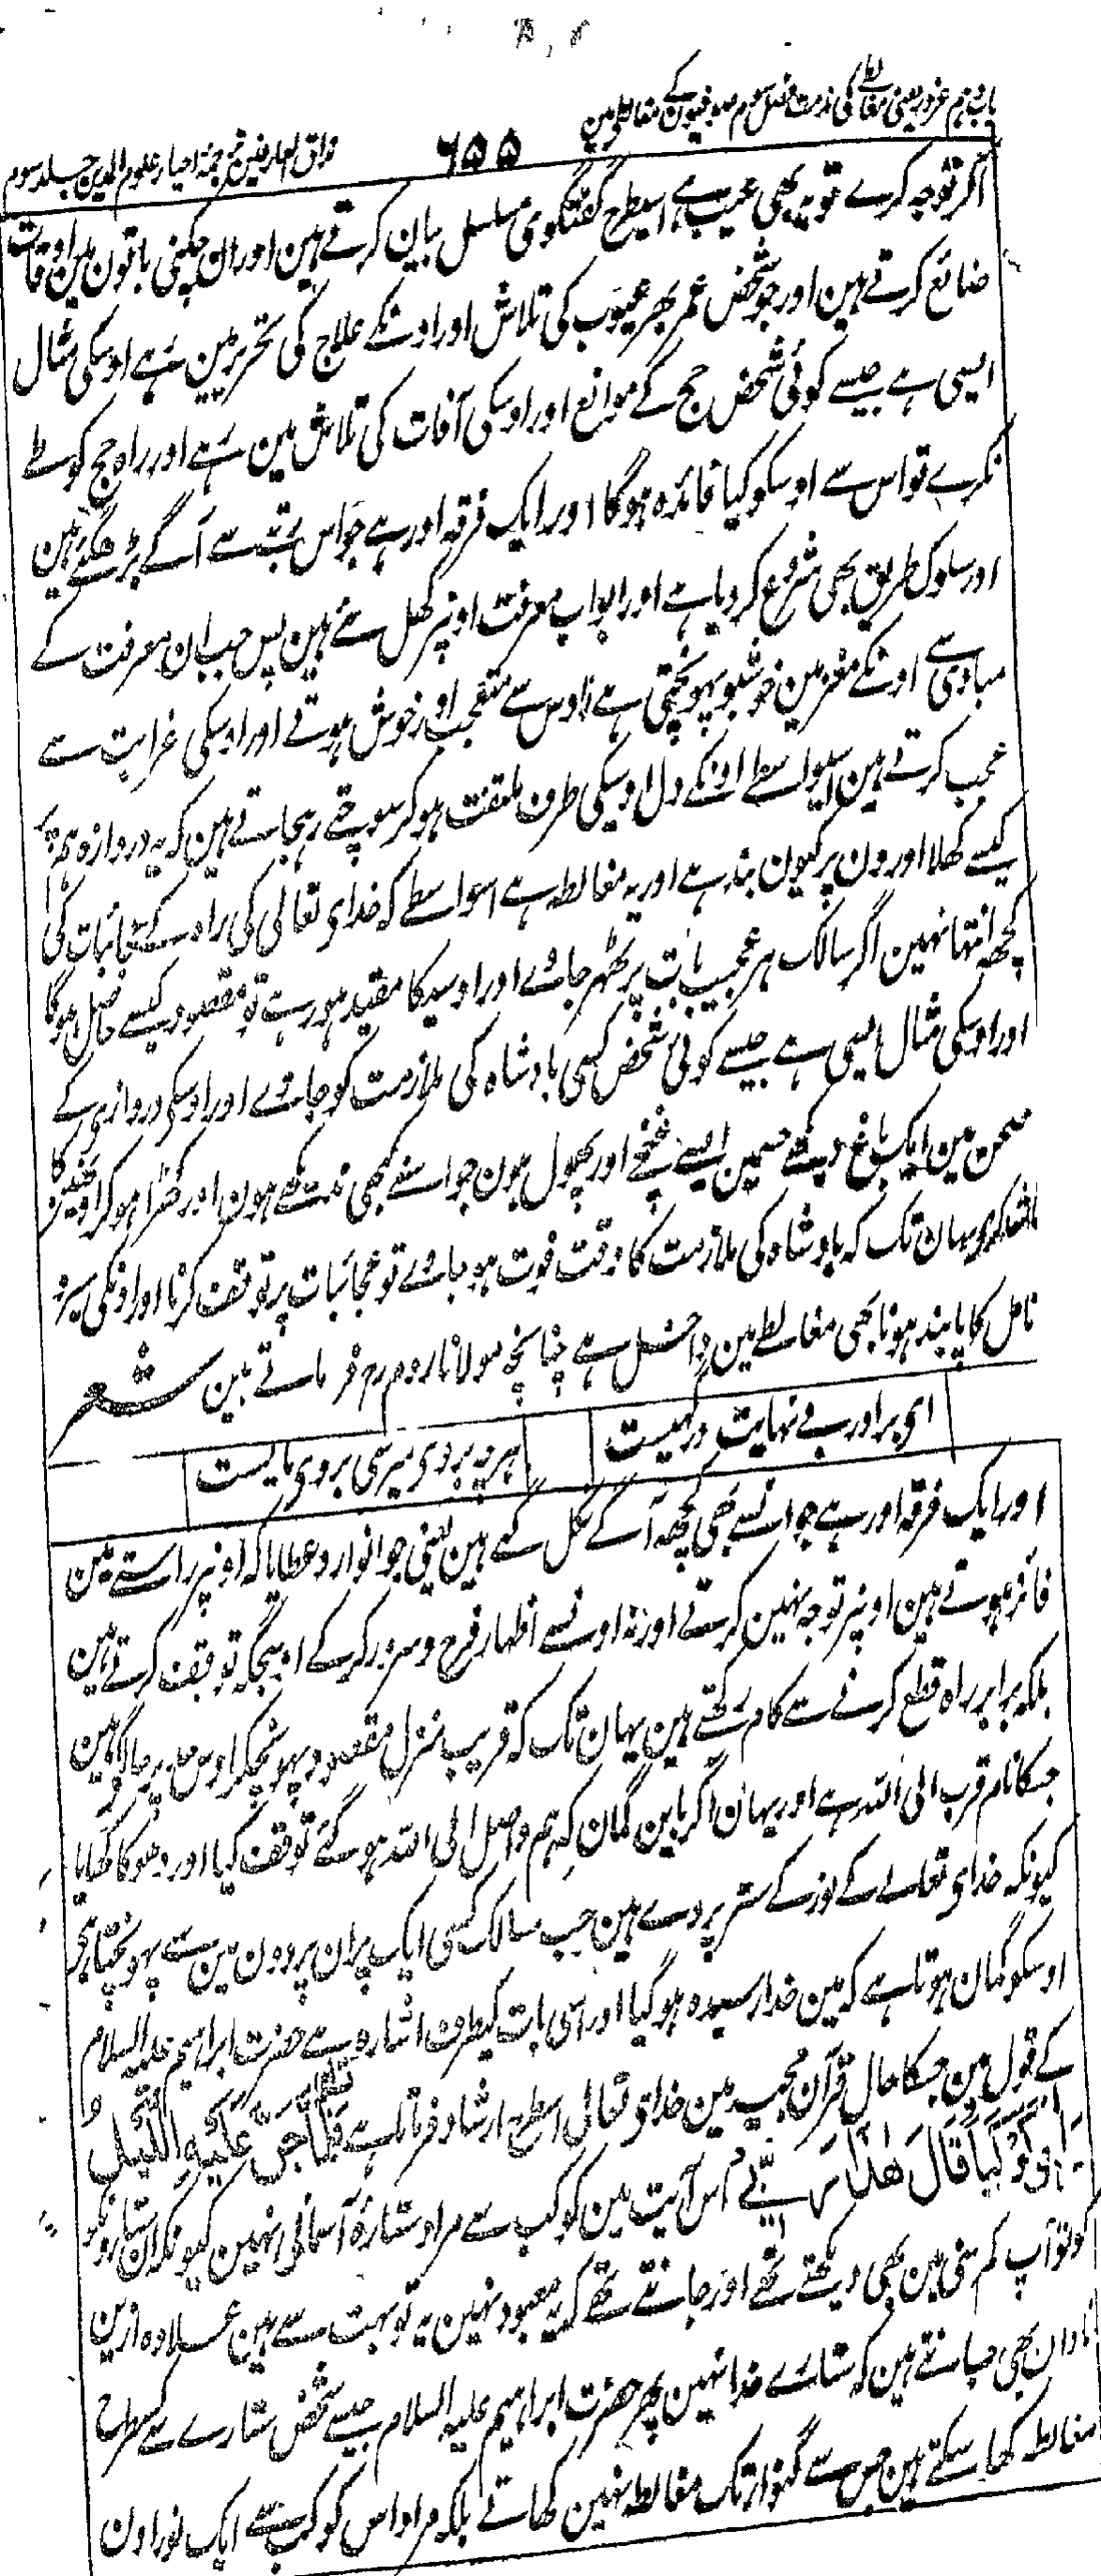 باب دہم غرور یعنی مغالطے کی مذمت فصل سوم صوفیون کے مغالطے مین
۶۵۵
مذاق العارفین ترجمۂ احیاء علوم الدین جلد سوم
اگر توجہ کرے تو یہ بھی عیب ہے اسیطرح گفتگوی مسلسل بیان کرتے ہین اور ان چکنی باتون مین اوقات
ضائع کرتے ہین اور جو شخص عمر بھر عیوب کی تلاش اور اونکے علاج کی تحریر مین رہے اوسکی مثال
ایسی ہے جیسے کوئی شخص حج کے موانع اور اوسکی آفات کی تلاش مین رہے اور راہ حج کو طے
نکرے تو اس سے اوسکو کیا فائدہ ہوگا اور ایک فرقہ اور ہے جو اس رتبے سے آگے بڑھ گئے ہین
اور سلوک طریق بھی شروع کر دیا ہے اور ابواب معرفت اونپر کھل گئے ہین پس جب ان معرفت کے
مبادی سے اونکے مغز مین خوشبو پہونچتی ہے تو اوس سے متعجب اور خوش ہوتے اور اوسکی غرابت سے
عجب کرتے ہین اسیواسطے اونکے دل اوسیکی طرف ملتفت ہوکر سوچتے رہجاتے ہین کہ یہ دروازہ ہمپر
کیسے کھلا اورون پر کیون بند ہے اور یہ مغالطہ ہے اسواسطے کہ خدای تعالی کی راہ کے عجائبات کی
کچھ انتہا نہین اگر سالک ہر عجیب بات پر ٹھہر جاوے اور اوسیکا مقید ہو رہے تو مقصود کیسے حاصل ہوگا
اور اوسکی مثال ایسی ہے جیسے کوئی شخص کسی بادشاہ کی ملازمت کو جاوے اور اوسکی دروازی کے
صحن مین ایک باغ دیکھے جسمین ایسے غنچے اور پھول ہون جو اسنے کبھی ندیکھے ہون اور کھڑا ہوکر اونھین کا
تماشا کری یہان تک کہ بادشاہ کی ملازمت کا وقت فوت ہو جاوے تو عجائبات پر توقف کرنا اور اونکی سیر و
تامل کا پابند ہونا بھی مغالطے مین داخل ہے چنانچہ مولانا روم رہ فرماتے ہین شعر
ای برادر بے نہایت درگہیست
ہرچہ بروی میرسی بروی مایست
اور ایک فرقہ اور ہے جو انسے بھی کچھ آگے نکل گئے ہین یعنی جو انوار و عطایا کہ اونپر راستے مین
فائز ہوتے ہین اونپر توجہ نہین کرتے اور نہ اونسے اظہار فرح و سرور کرکے اوسجگہ توقف کرتے ہین
بلکہ برابر راہ قطع کرنے سے کام رکھتے ہین یہان تک کہ قریب منزل مقصود پہونچکر اوس حد پر جا لگے ہین
جسکا نام قرب الی اللہ ہے اور یہان آکر باین گمان کہ ہم واصل الی اللہ ہو گئے توقف کیا اور دھوکا کھایا
کیونکہ خدای تعالے کے نور کے ستر پردے ہین جب سالک کسی ایک پر ان پردون مین سے پہونچتا ہے
اوسکو گمان ہوتا ہے کہ مین خدا رسیدہ ہو گیا اور اسی بات کیطرف اشارہ ہے حضرت ابراہیم علیہ السلام
کے قول مین جسکا حال قرآن مجید مین خدای تعالی اسطرح ارشاد فرماتا ہے فَلَمَّا جَنَّ عَلَيْهِ اللَّيْلُ
رَأَىٰ كَوْكَبًا قَالَ هَٰذَا رَبِّي اس آیت مین کوکب سے مراد ستارۂ آسمانی نہین کیونکہ ان ستارونکو
تو آپ کم سنی مین بھی دیکھتے تھے اور جانتے تھے کہ یہ معبود نہین یہ تو بہت سے ہین علاوہ ازین
نادان بھی جانتے ہین کہ ستارے خدا نہین پھر حضرت ابراہیم علیہ السلام جیسے شخص ستارے سے کسطرح
مغالطہ کھا سکتے ہین جس سے گنوار تک مغالطہ نہین کھاتے بلکہ مراد اس کوکب سے ایک نور اون